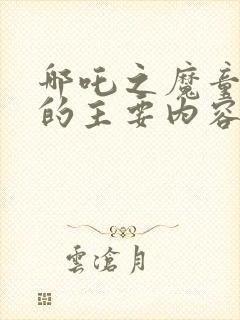 哪吒之魔童
的主要内容
雲滄月